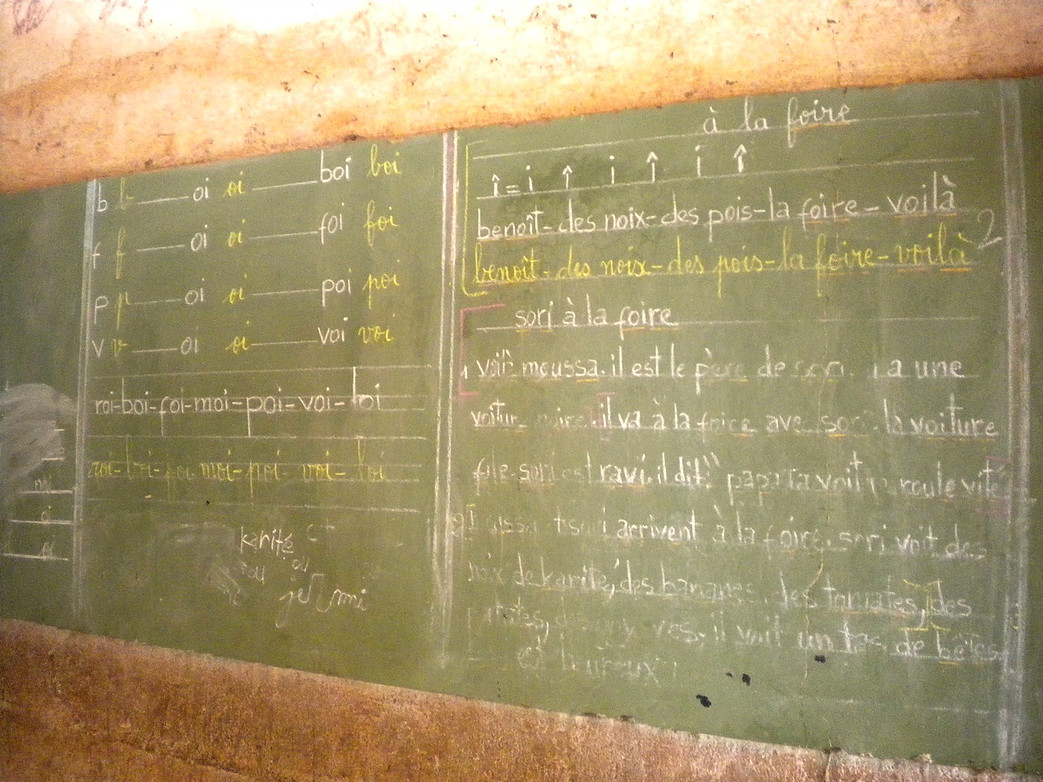 b b — oi oi — boi boi
f f — oi oi — foi foi
p p — oi oi — poi poi
v v — oi oi — voi voi
roi-boi-foi-moi-poi-voi-loi
roi-boi-foi-moi-poi-voi-loi
karité
je mi
à la foire
î = i ↑ i ↑ i ↑
benoît-des noix-des pois-la foire-voilà
benoît-des noix-des pois-la foire-voilà
2
sori à la foire
1 moussa. il est le père de sori. a une
il va à la foire avec sori. la voiture
file. sori est ravi. il dit: papa ta roule vite
arrivent à la foire. sori voit des
noix de karité, des bananes, des tomates, des
il voit un tas de bêtes.
heureux